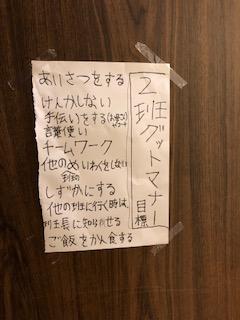 2班グットマナー
目標
あいさつをする
けんかしない
手伝いをする
言葉使い
チームワーク
他のめいわくをしない
しずかにする
他の班に行く時は、
班長に知らせる
ご飯をかん食する